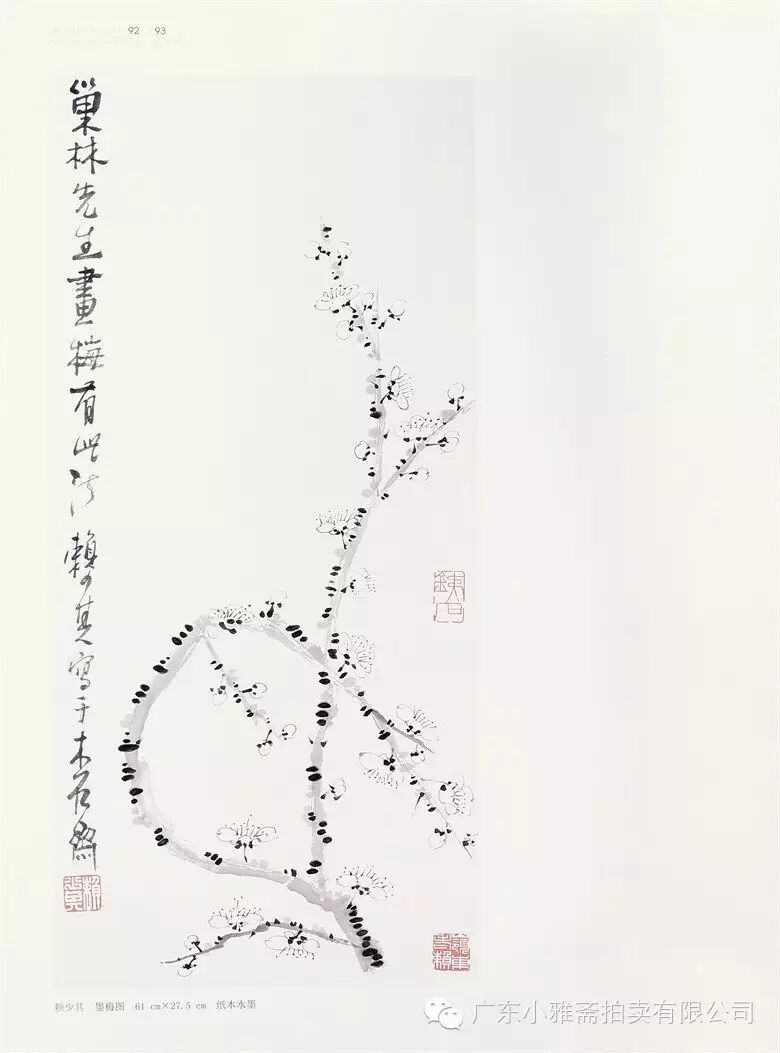 92 93
巢林先生畫梅有此法 賴少其寫于木石齋
赖少其 墨梅图 61 cm×27.5 cm 纸本水墨
广东小雅斋拍卖有限公司